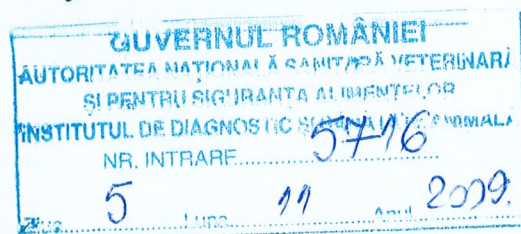 GUVERNUL ROMÂNIEI
AUTORITATEA NAȚIONALĂ SANITARĂ VETERINARĂ
ȘI PENTRU SIGURANȚA ALIMENTELOR
INSTITUTUL DE DIAGNOSTIC ANIMALĂ
NR. INTRARE 5716
Ziua 5 Luna 11 Anul 2009.